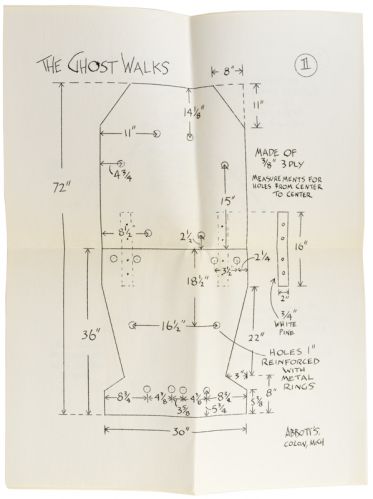 THE GHOST WALKS
II
8"
11"
14 1/8"
11"
MADE OF
3/8" 3 PLY
MEASUREMENTS FOR
HOLES FROM CENTER
TO CENTER
4 3/4
72"
15"
8 1/2"
2 1/2"
2 1/4
3 1/2"
16"
18 1/2"
2"
3/4"
WHITE
PINE
36"
16 1/2"
22"
HOLES 1"
REINFORCED
WITH
METAL
RINGS
3"
8"
8 3/4
4 3/8
4 3/8
8 3/4
5 3/4
5 3/8
36"
ABBOTT'S
COLON, MICH